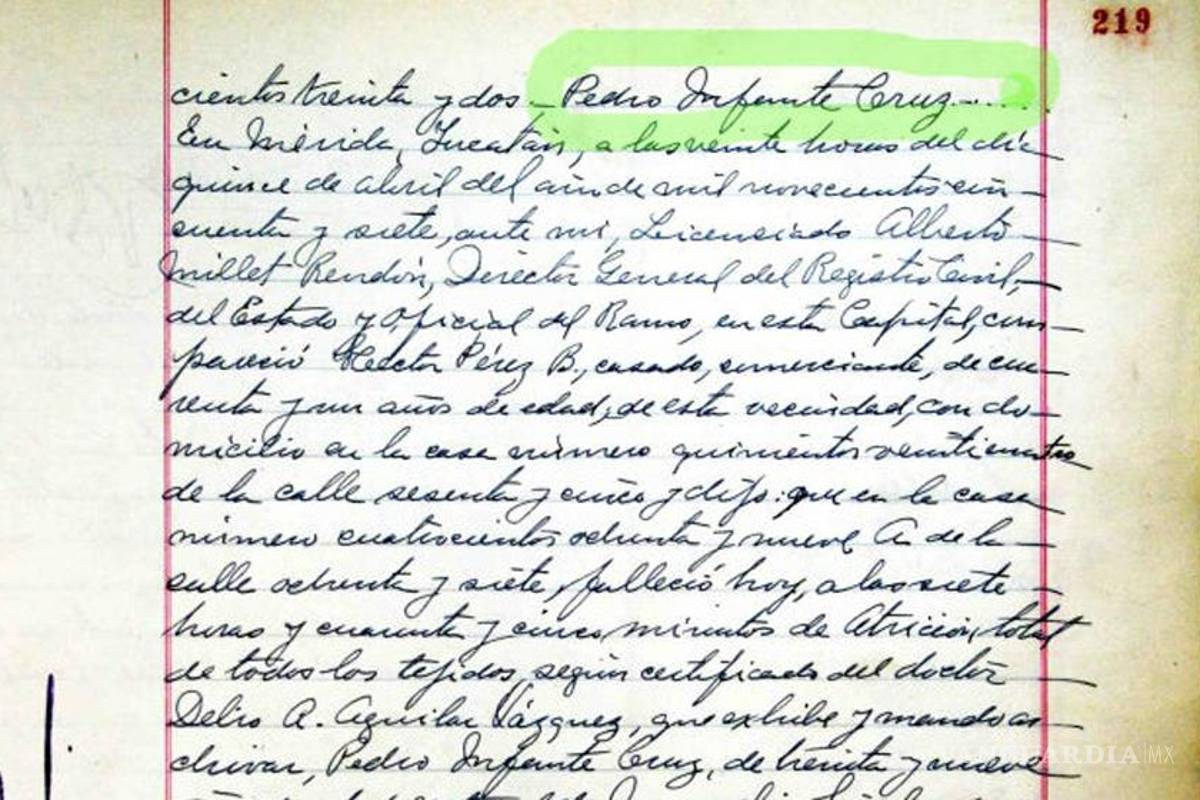 219
cientos treinta y dos.— Pedro Infante Cruz......
En Mérida, Yucatán, a las veinte horas del día
quince de abril del año de mil novecientos cin—
cuenta y siete, ante mi, Licenciado Alberto
Millet Rendón, Director General del Registro Civil,
del Estado y Oficial del Ramo, en esta Capital, com—
pareció Hector Pérez B., casado, comerciante, de cua—
renta y un años de edad, de esta vecindad, con do—
micilio en la casa número quinientos veinticuatro
de la calle sesenta y cinco y dijo: que en la casa
número cuatrocientos ochenta y nueve A de la
calle ochenta y siete, falleció hoy, a las siete
horas y cuarenta y cinco minutos de Atrición total
de todos los tejidos, según certificado del doctor
Delio A. Aguilar Vázquez, que exhibe y mando ar—
chivar, Pedro Infante Cruz, de treinta y nueve
VANGUARDIA|MX